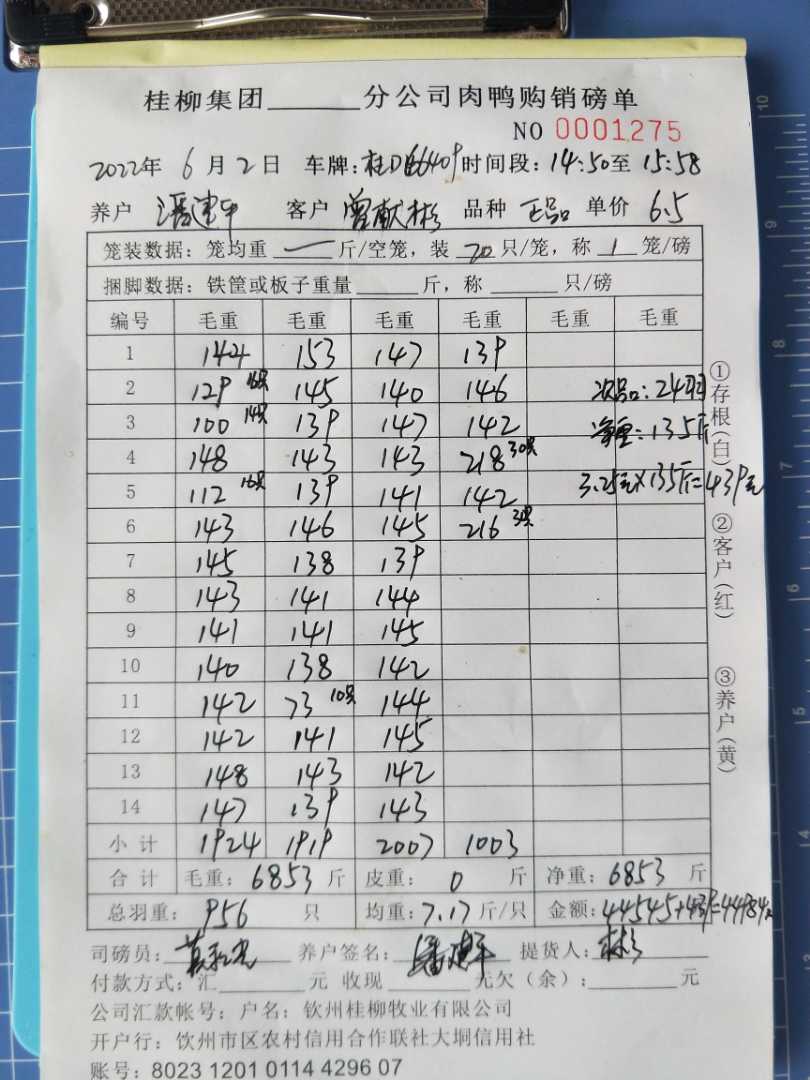 桂柳集团______分公司肉鸭购销磅单
NO 0001275
2022年 6 月 2 日 车牌: 桂D 6409 时间段: 14:50至 15:58
养户 潘建平 客户 曾献彬 品种 正品 单价 6.5
笼装数据: 笼均重 一 斤/空笼, 装 20 只/笼, 称 1 笼/磅
捆脚数据: 铁筐或板子重量______斤, 称______只/磅
编号 毛重 毛重 毛重 毛重 毛重 毛重
1 144 153 147 139
2 129 18只 145 140 146 次品: 24羽
3 100 14只 139 147 142 净重: 135斤
4 148 143 143 218 30只
5 112 16只 139 141 142 3.25元×135斤=439元
6 143 146 145 216
7 145 138 139
8 143 141 144
9 141 141 145
10 140 138 142
11 142 73 10只 144
12 142 141 145
13 148 143 142
14 147 139 143
小计 1924 1919 2007 1003
合计 毛重: 6853 斤 皮重: 0 斤 净重: 6853 斤
总羽重: 956 只 均重: 7.17 斤/只 金额: 44545+439=44984元
司磅员: 养户签名: 潘建平 提货人: 彬
付款方式: 汇______元 收现______元欠(余):______元
公司汇款帐号: 户名: 钦州桂柳牧业有限公司
开户行: 钦州市区农村信用合作联社大垌信用社
账号: 8023 1201 0114 4296 07
①存根(白)
②客户(红)
③养户(黄)